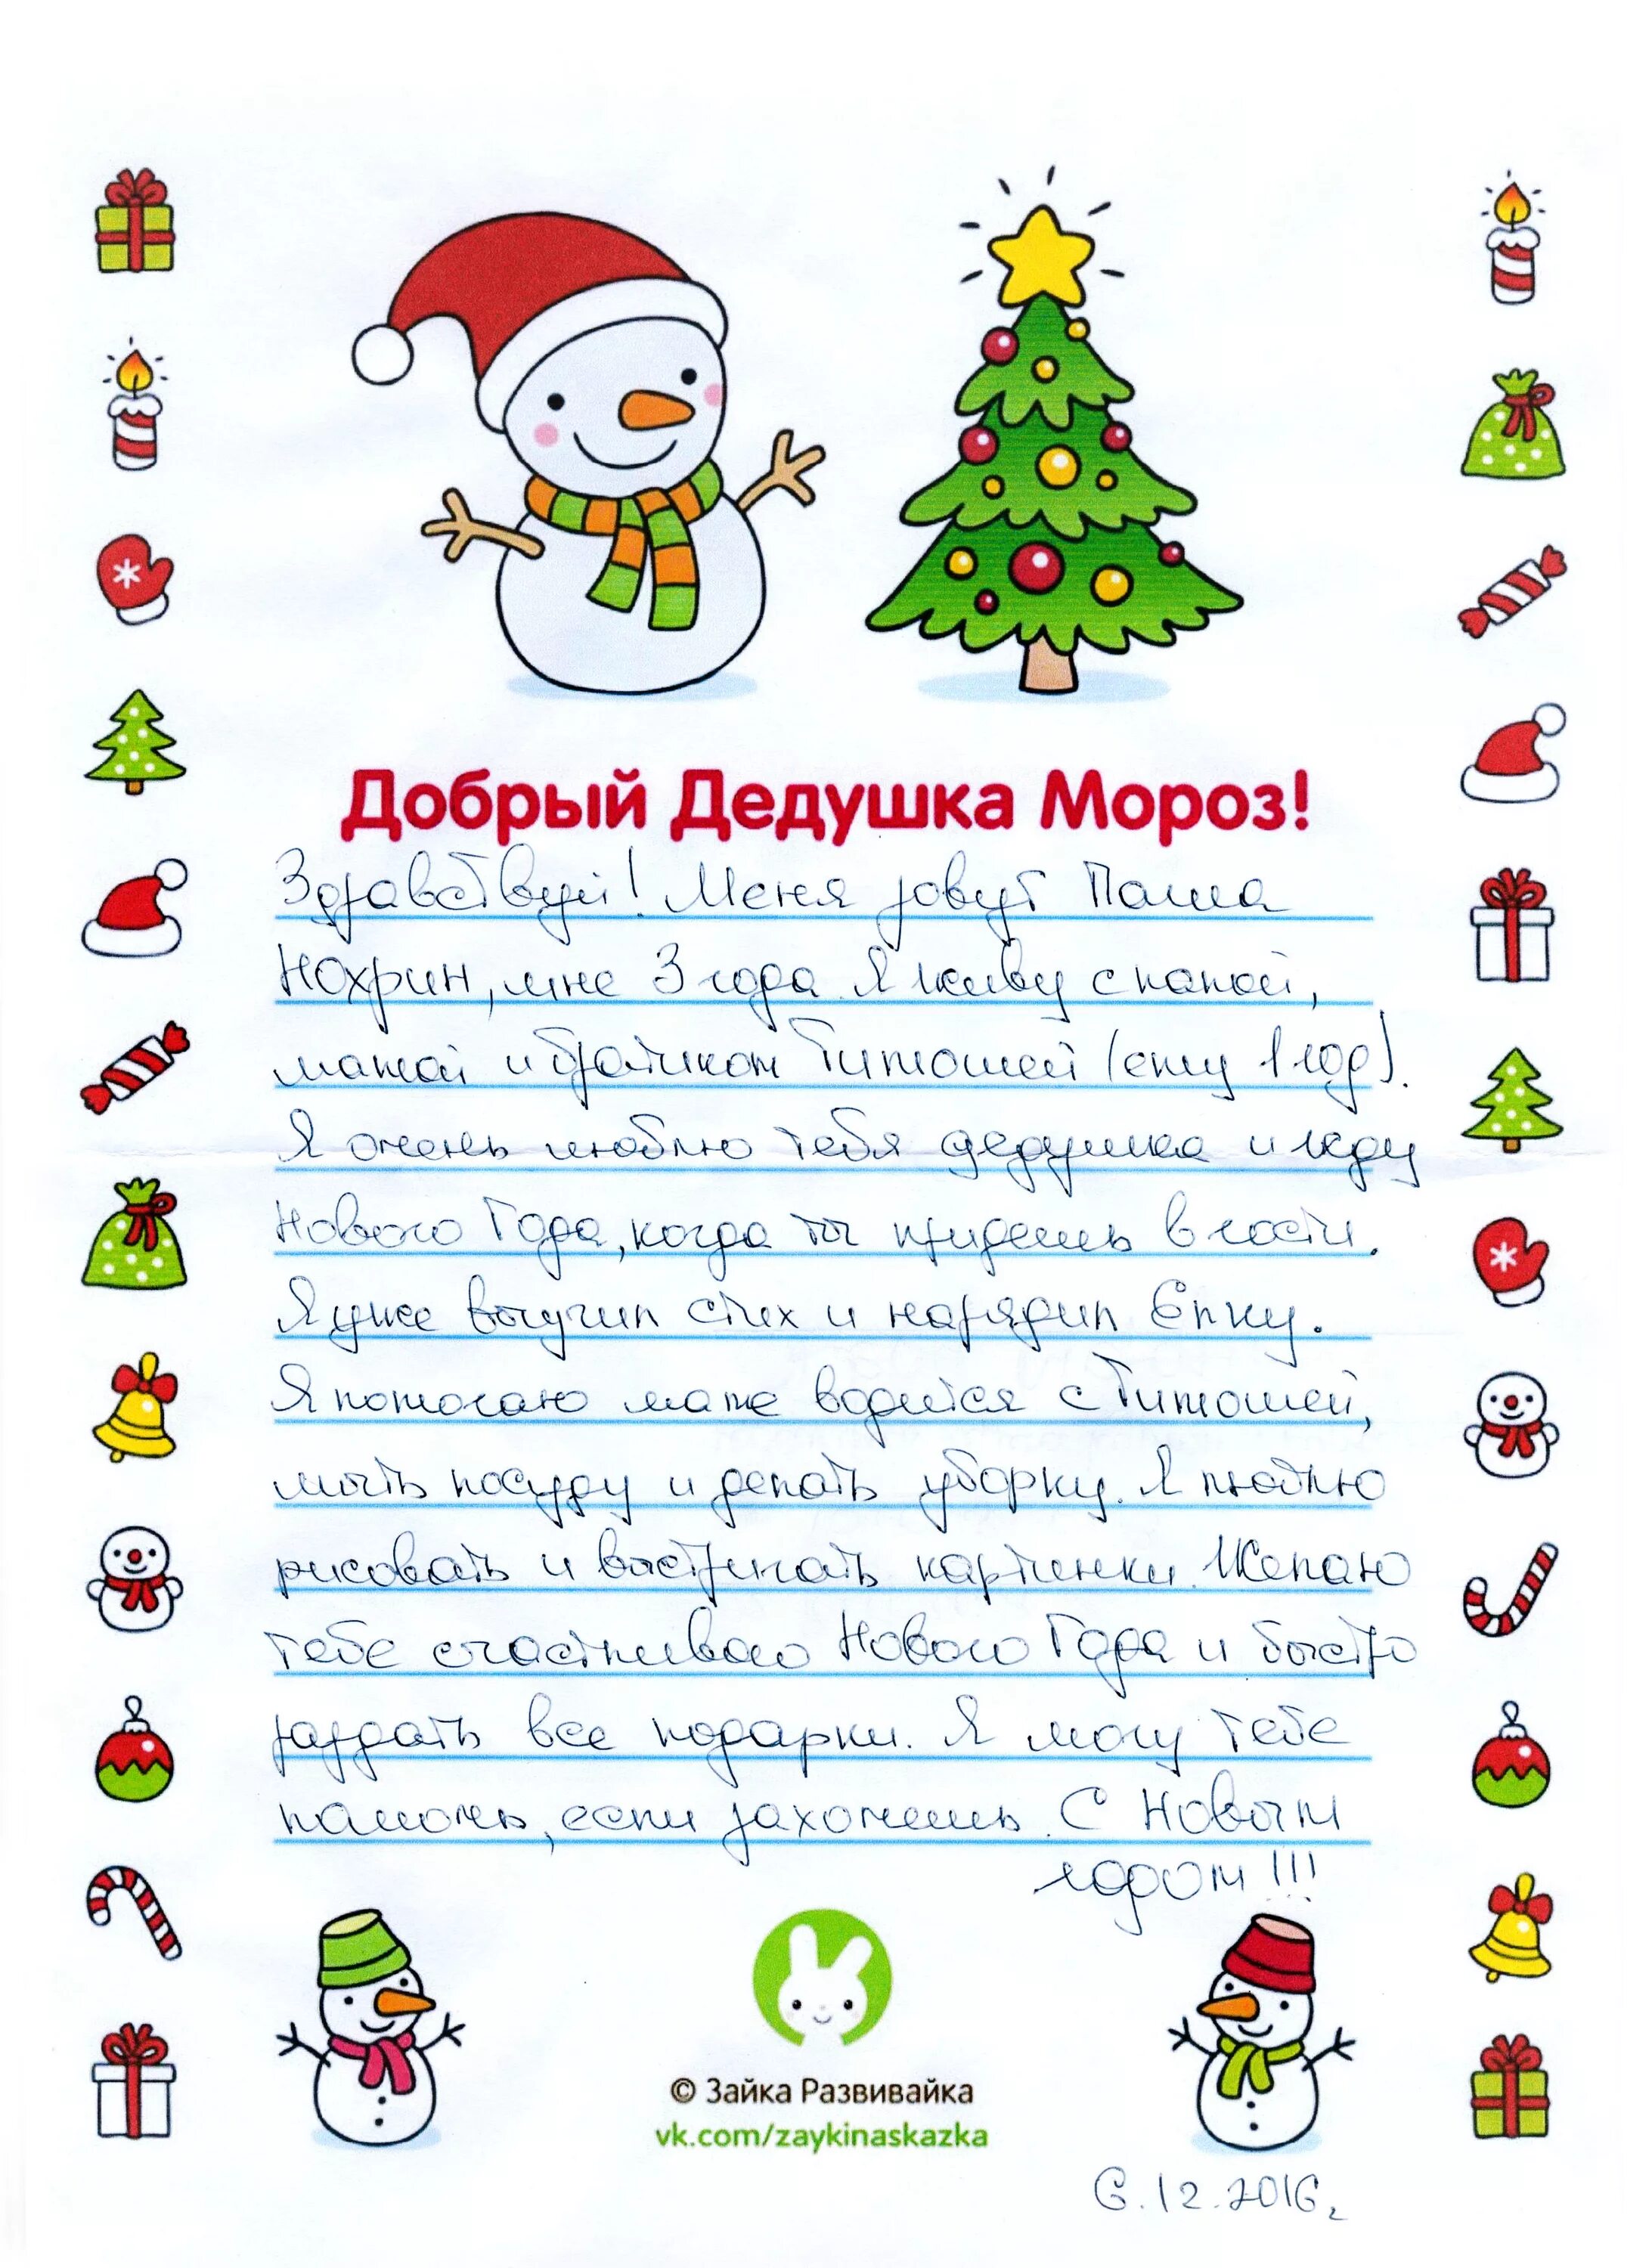 Добрый Дедушка Мороз!
Здравствуй! Меня зовут Паша
Нохрин, мне 3 года. Я живу с папой,
мамой и братиком Тимошей (ему 1 год).
Я очень люблю тебя дедушка и жду
Нового Года, когда ты придешь в гости.
Я уже выучил стих и нарядил Ёлку.
Я помогаю маме водится с Тимошей,
мыть посуду и делать уборку. Я люблю
рисовать и выстригать картинки. Желаю
тебе счастливого Нового Года и быстро
раздать все подарки. Я могу тебе
помочь, если захочешь. С Новым
годом!!!
© Зайка Развивайка
vk.com/zaykinaskazka
6.12.2016г